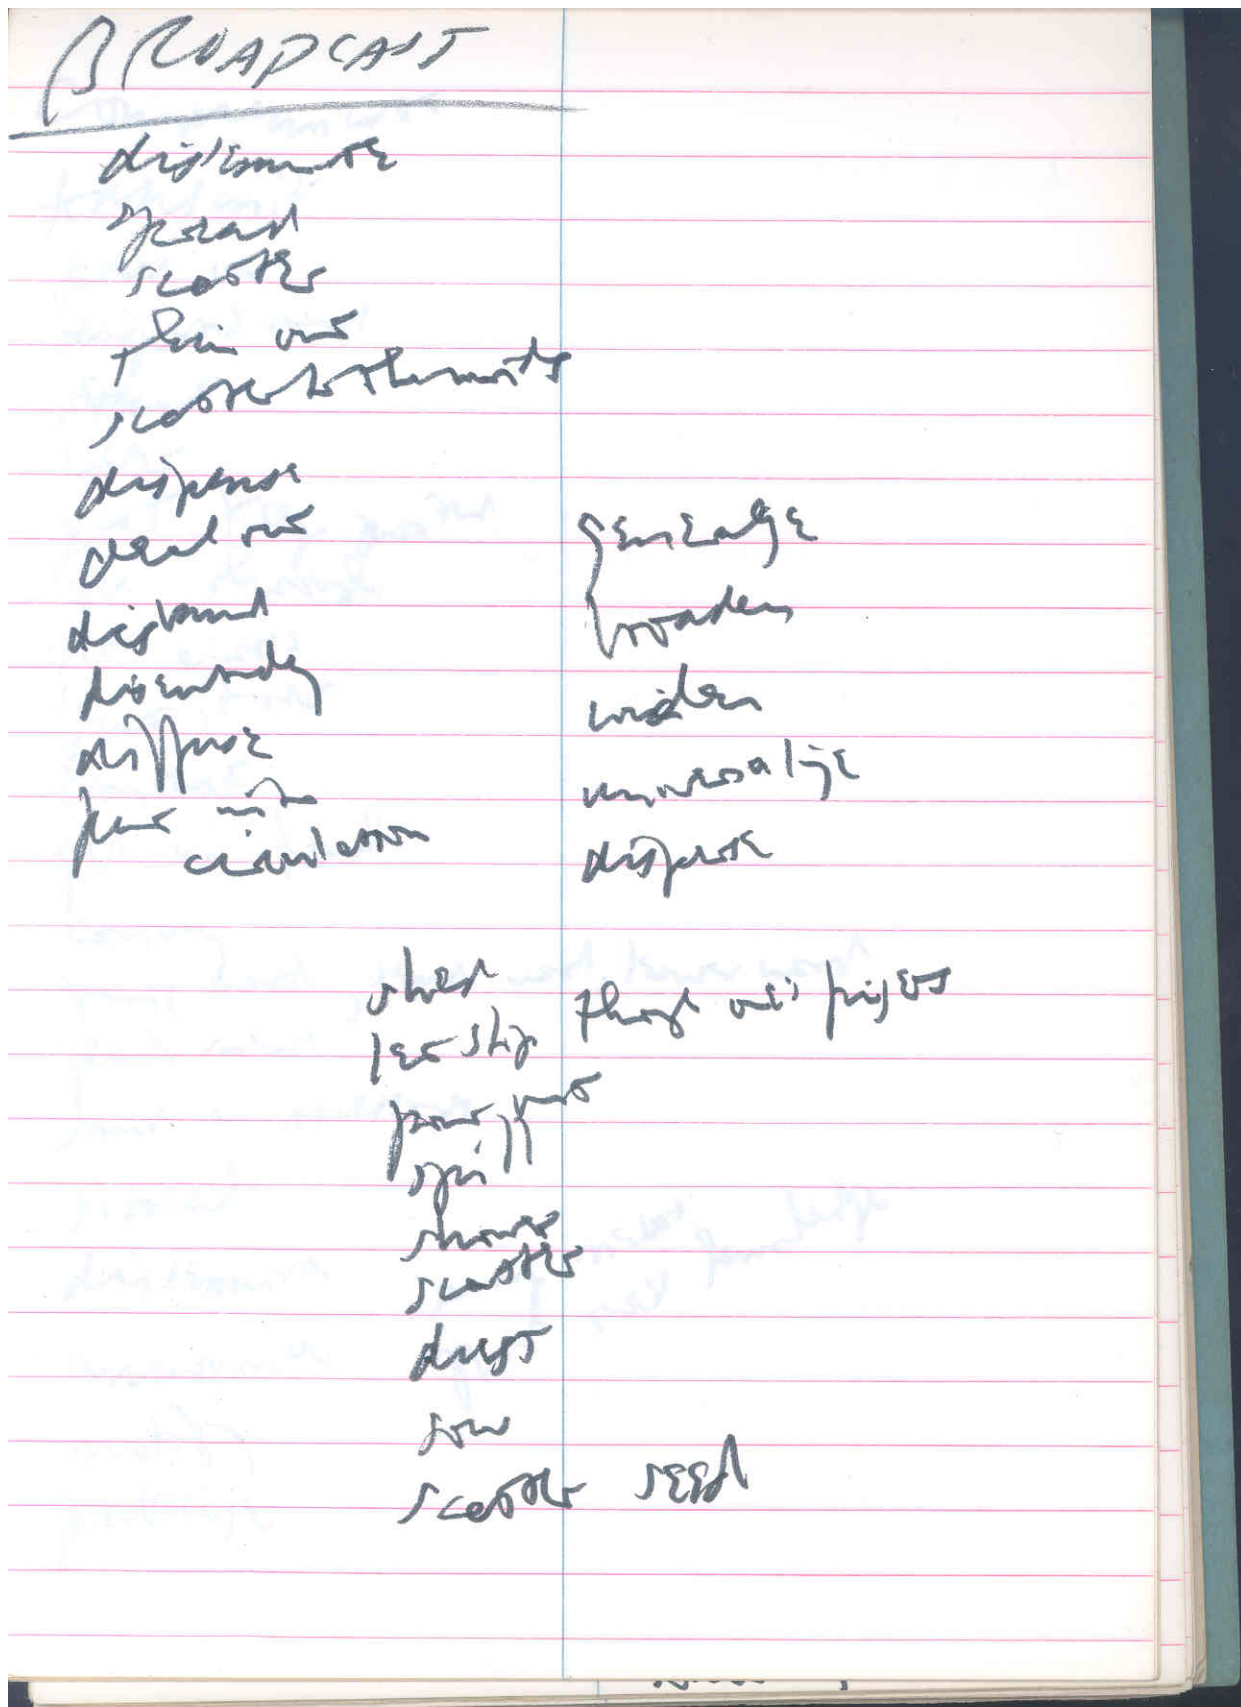 BROADCAST
disseminate
spread
scatter
thin out
scatter to the winds
dispense
deal out
disband
disembody
diffuse
put into
circulation
generalize
broaden
widen
universalize
disperse
shed
let slip through one's fingers
pour out
spill
shower
scatter
dust
sow
scatter seed